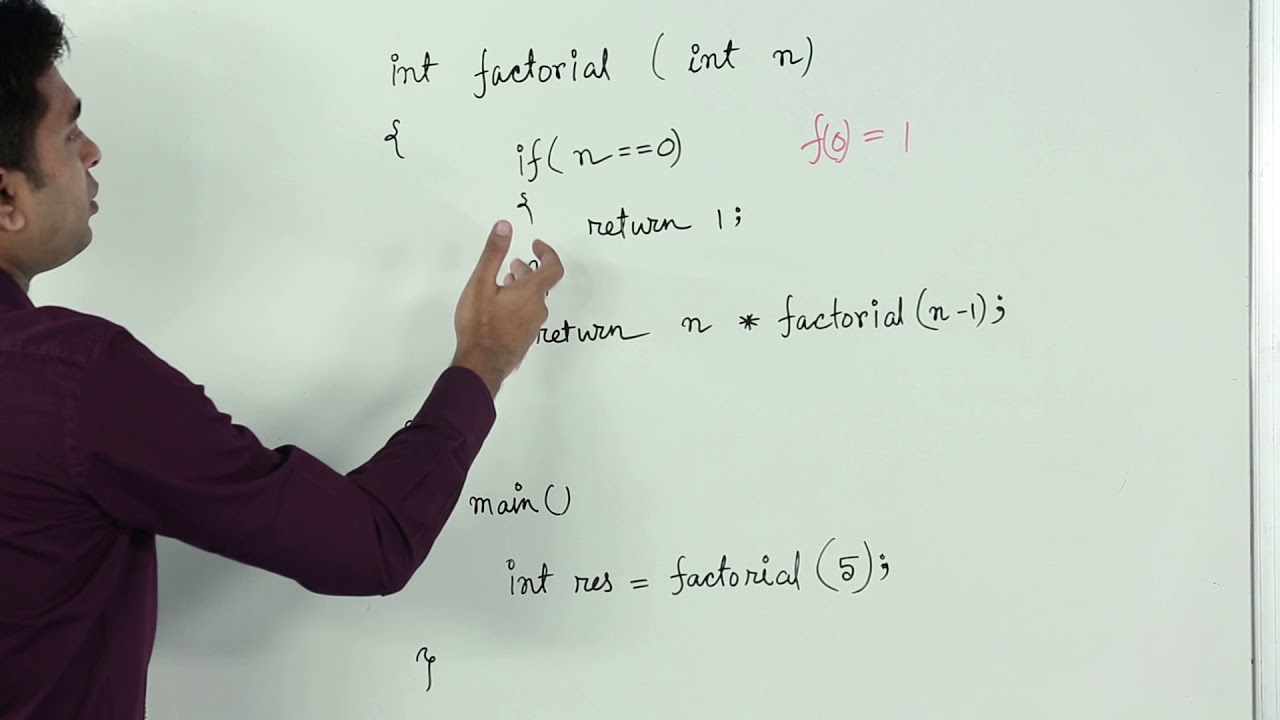 int factorial (int n)
{
if(n==0)
f(0) = 1
{
return 1;
}
return n * factorial(n-1);
main()
int res = factorial(5);
}